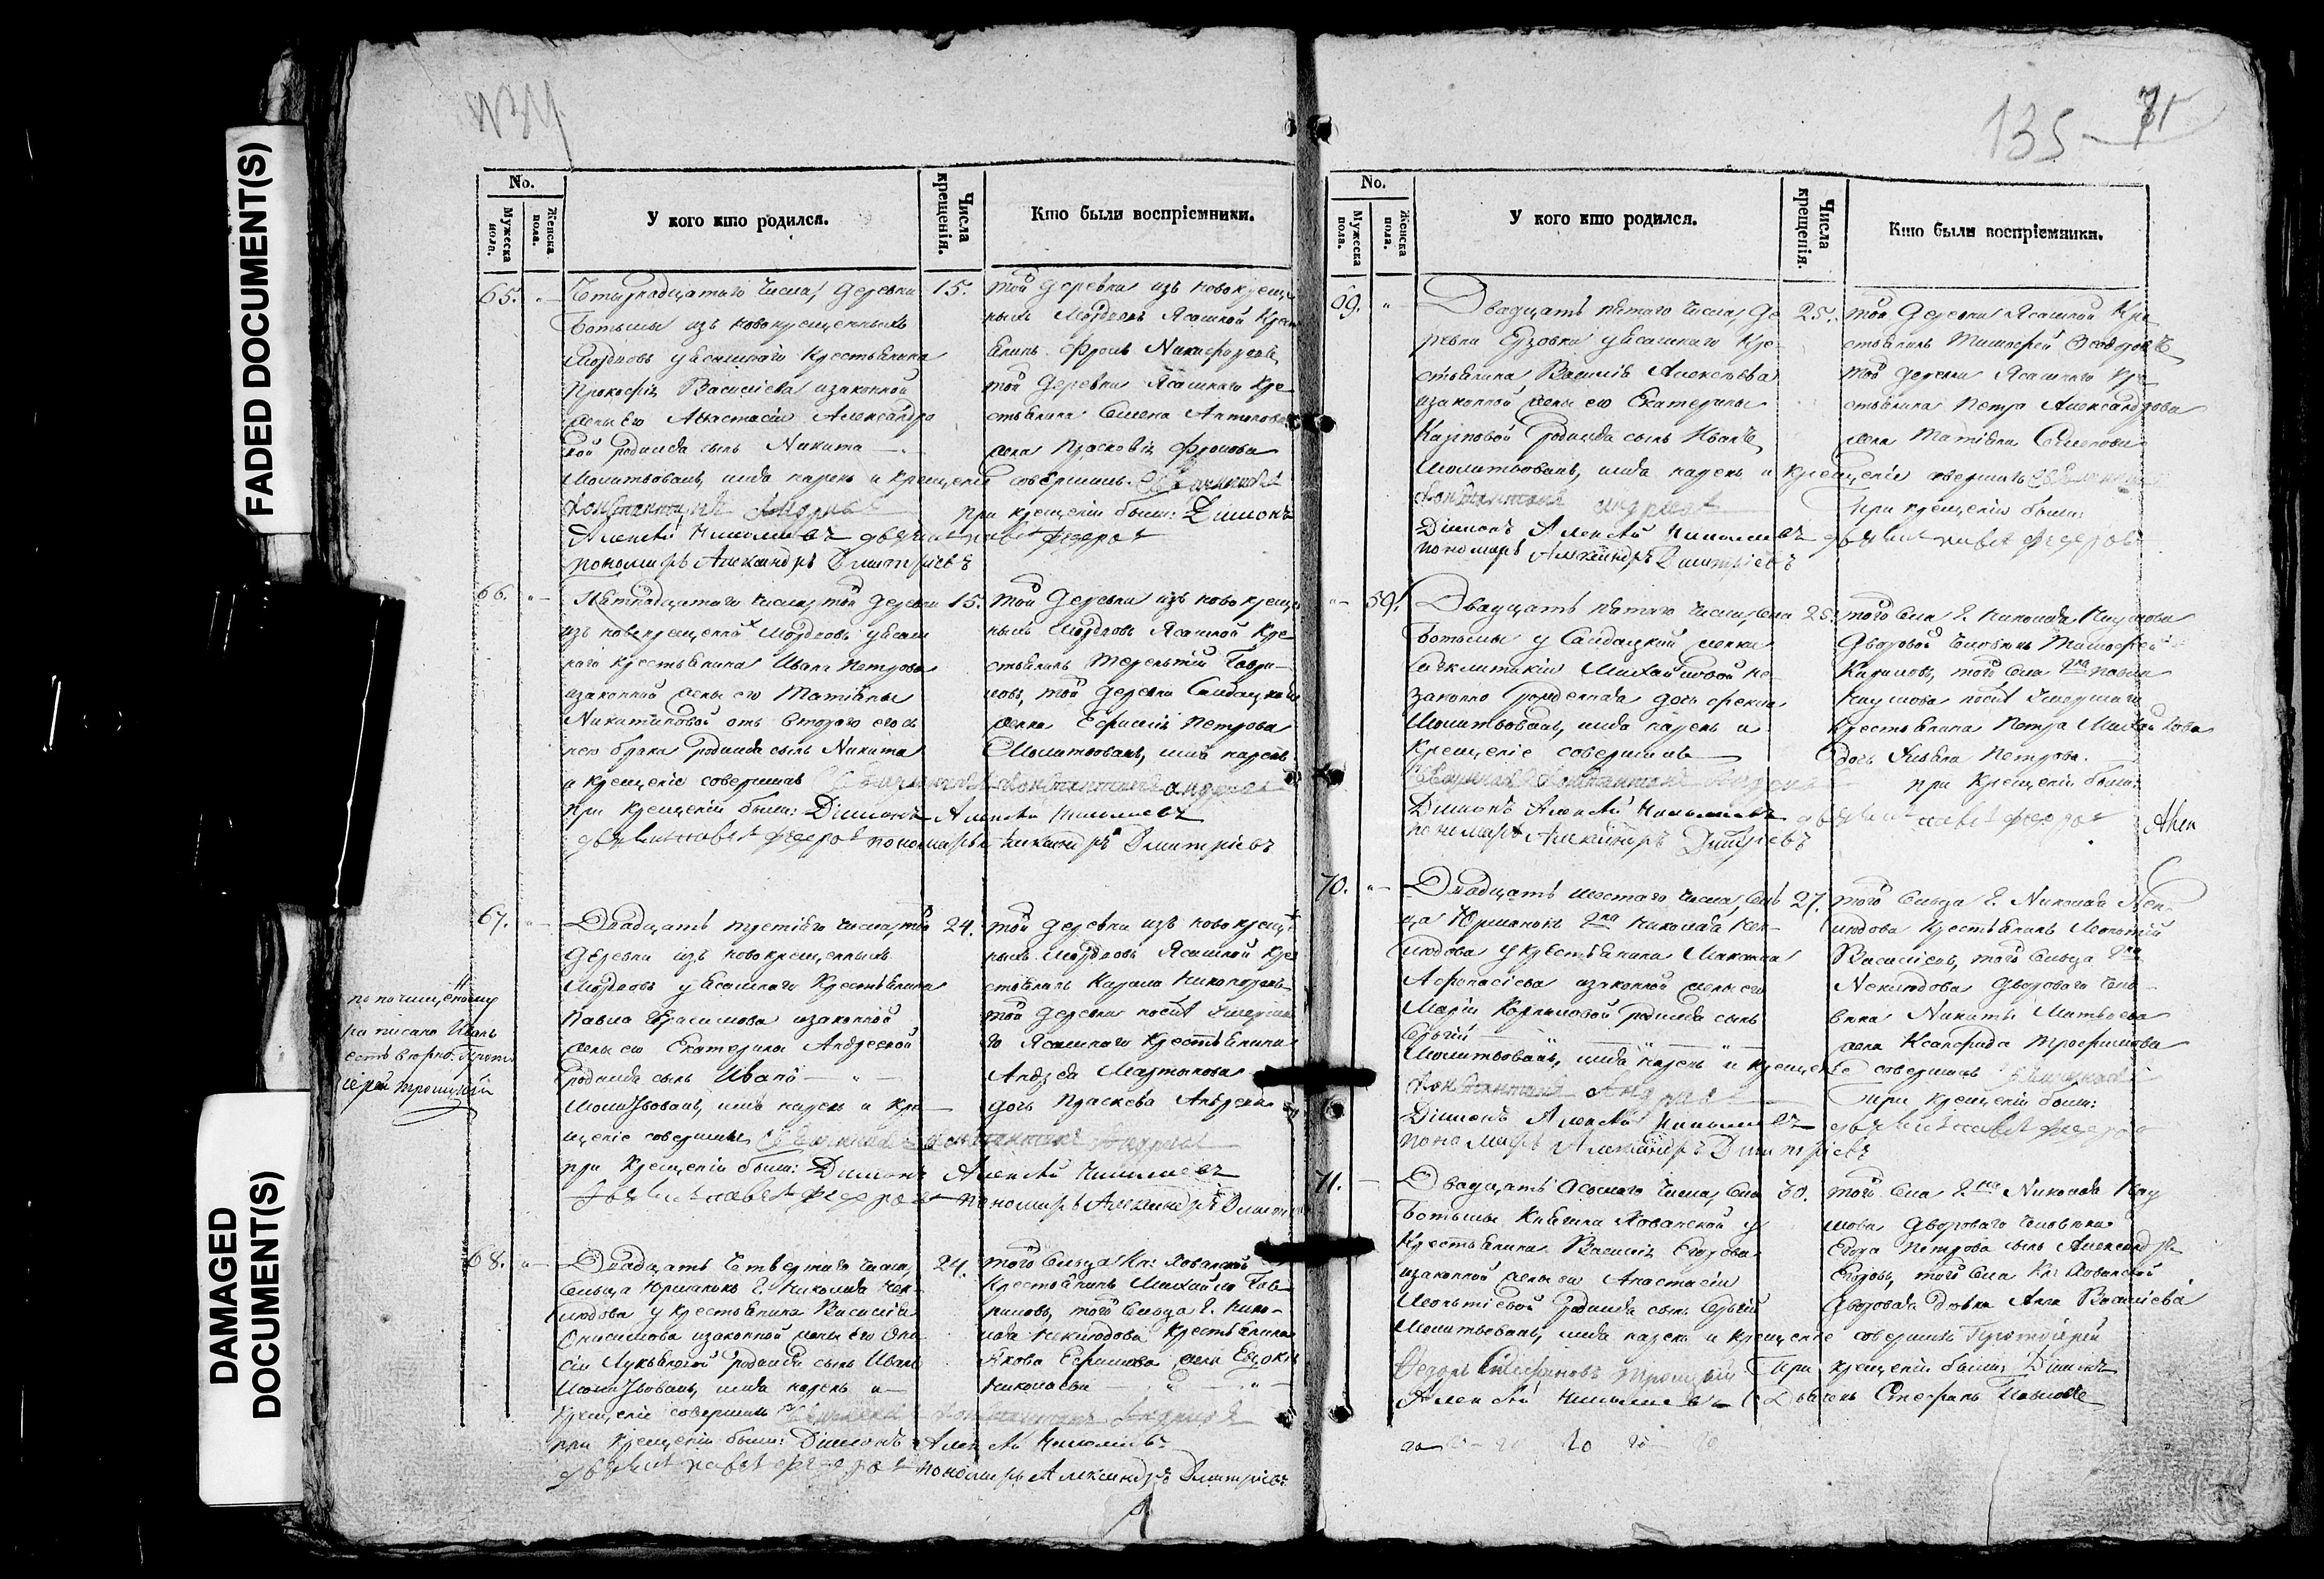 FADED DOCUMENT(S)
DAMAGED
DOCUMENT(S)
No.
Мужеска пола.
Женска пола.
У кого кто родился.
Числа крещенія.
Кто были воспріемники.
65.
Четырнадцатаго числа, деревни
Ботьмы изъ новокрещенныхъ
Мордвовъ у ясашнаго крестьянина
Прокофія Васильева и законной
жены его Анастасіи Александро
вой родился сынъ Никита
Молитвовалъ, имя нарекъ и крещеніе совершилъ Священникъ
Константинъ Андреевъ при крещеніи были: Діаконъ
Алексѣй Николаевъ дьячекъ Павелъ Федоровъ
пономарь Александръ Дмитріевъ
15.
той деревни изъ новокреще
ныхъ Мордвовъ ясашной крес
янинъ Фролъ Никифоровъ
той деревни ясашнаго кре
стьянина Семена Антипова
жена Прасковія Фролова
66.
Пятнадцатаго числа, той деревни
изъ новокрещенной Мордвовъ у ясаш
наго крестьянина Ивана Петрова
и законной жены его Татіяны
Никитиной отъ втораго его съ
нею брака родился сынъ Никита
и крещеніе совершилъ Священникъ Константинъ Андреевъ
при крещеніи были: Діаконъ Алексѣй Николаевъ
дьячекъ Павелъ Федоровъ пономарь Александръ Дмитріевъ
15.
той деревни изъ новокреще
ныхъ Мордвовъ ясашной кре
стьянинъ Терентій Гаври
ловъ, той деревни Салдацкая
жена Ефимія Петрова
Молитвовалъ, имя нарекъ
67.
Двадцать третіяго числа, той
деревни изъ новокрещенныхъ
Мордвовъ у ясашнаго крестьянина
Павла Герасимова и законной
жены его Екатерины Андреевой
родился сынъ Иванъ
Молитвовалъ, имя нарекъ и кре
щеніе совершилъ Священникъ Константинъ Андреевъ
при крещеніи были: Діаконъ Алексѣй Николаевъ
дьячекъ Павелъ Федоровъ пономарь Александръ Дмитр
24.
той деревни изъ новокреще
ныхъ Мордвовъ ясашной кре
стьянинъ
той деревни послѣ умерша
го ясашнаго крестьянина
Андрея Мартынова
дочь Праскева Андреева
по почищеному
написано Иванъ
есть вѣрно. Прото
іерей Троицкій
68.
Двадцать четвертаго числа,
сельца Юрманокъ г. Николая Нек
людова у крестьянина Василія
Онисимова и законной жены его
Лукьяновой родился сынъ Иванъ
Молитвовалъ, имя нарекъ и
крещеніе совершилъ Священникъ Константинъ Андреевъ
при крещеніи были: Діаконъ Алексѣй Николаевъ
дьячекъ Павелъ Федоровъ пономарь Александръ Дмитріевъ
24.
того сельца Кн: Хованской
крестьянинъ Михайло Гав
риловъ, того сельца г. Нико
лая Неклюдова крестьянина
Якова Ефимова жена Евдокія
Николаева
135
71
No.
Мужеска пола.
Женска пола.
У кого кто родился.
Числа крещенія.
Кто были воспріемники.
69.
Двадцать пятаго числа, де
ревни Ерзовки у ясашнаго кре
стьянина Василія Алексѣева
и законной жены его Екатерины
Карповой родился сынъ Иванъ
Молитвовалъ, имя нарекъ и крещеніе совершилъ Священникъ
Константинъ Андреевъ при крещеніи были:
Діаконъ Алексѣй Николаевъ дьячекъ Павелъ Федоровъ
пономарь Александръ Дмитріевъ
25.
той деревни ясашной кре
стьянинъ Тимофей Федоровъ
той деревни ясашнаго кре
стьянина Петра Александрова
жена Татіяна Семенова
59.
Двадцать пятаго числа, села
Ботьмы у Салдацкой женки
Михайловой не
законно рожденная дочь
Молитвовалъ, имя нарекъ и
крещеніе совершилъ
Священникъ Константинъ Андреевъ
Діаконъ Алексѣй Николаевъ дьячекъ Павелъ Федоровъ
пономарь Александръ Дмитріевъ
25.
того села г. Николая Наумова
дворовой человѣкъ Тимофей
того села
Наумова послѣ умершаго
крестьянина Петра Михайлова
дочь Ульяна Петрова.
при крещеніи были:
70.
Двадцать шестаго числа, сель
ца Юрманокъ г-на Николая Нек
людова у крестьянина Максима
Афонасіева и законной жены его
Маріи Корниловой родился сынъ
Сергій
Молитвовалъ, имя нарекъ и крещеніе совершилъ Священникъ
Константинъ Андреевъ при крещеніи были:
Діаконъ Алексѣй Николаевъ дьячекъ Павелъ Федоровъ
пономарь Александръ Дмитріевъ
27.
того сельца г. Николая Нек
людова крестьянинъ Леонтій
Васильевъ, того сельца г-на
Неклюдова двороваго чело
вѣка Никиты Матвѣева
жена Ксанфида Трофимова
71.
Двадцать осьмаго числа, села
Ботьмы Княгини Хованской у
крестьянина Василія Егорова
и законной жены его Анастасіи
Леонтіевой родился сынъ Сергій
Молитвовалъ, имя нарекъ и крещеніе совершилъ Протоіерей
Федоръ Стефановъ Троицкій При крещеніи были: Діаконъ
Алексѣй Николаевъ Дьячекъ Стефанъ
30.
того села г-на Николая Нау
мова двороваго человѣка
Егора Петрова сынъ Александръ
Егоровъ, того села Кн: Хованской
дворовая дѣвка Анна Васильева